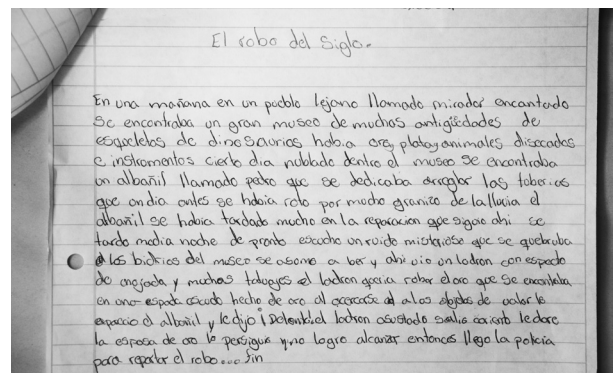 El robo del Siglo.
En una mañana en un pueblo lejano llamado mirador encantado
se encontraba un gran museo de muchas antigüedades de
esqueletos de dinosaurios habia oro, plata y animales disecados
e instrumentos cierto dia nublado dentro el museo se encontraba
un albañil llamado pedro que se dedicaba arreglar las tuberias
que un dia antes se habia roto por mucho granizo de la lluvia el
albañil se habia tardado mucho en la reparacion que sigao ahi se
tardo media noche de pronto escucho un ruido misterioso que se quebraba
los bidrios del museo se asomo a ber y ahi vio un ladron con espada
de y muchos tatuages el ladron queria robar el oro que se encontraba
en una espada escudo hecho de oro al acercarse a los objetos de valor le
el albañil y le dijo ¡ ladron asustado salio le
la esposa de oro lo persiguio y no logro alcanzar entonces llego la policia
para reportar el robo... fin